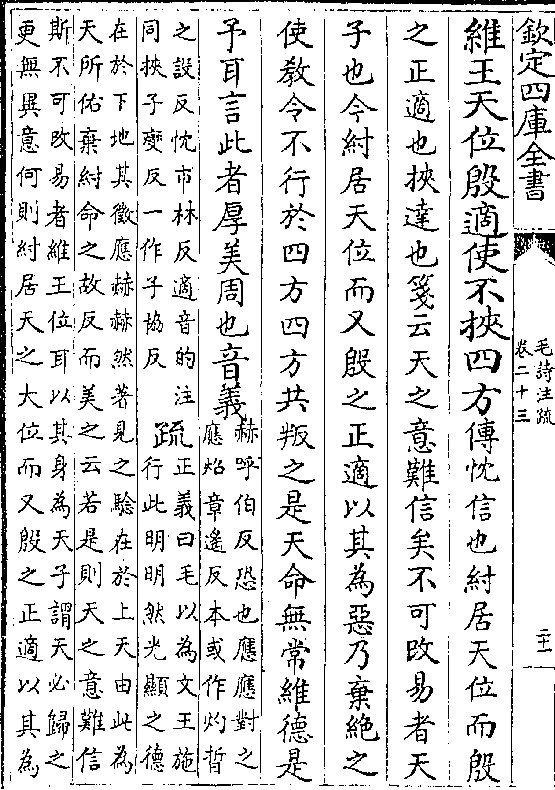 欽定四庫全書
毛詩注疏
卷二十三
二十一
維王天位殷適使不挾四方傳忱信也紂居天位而殷
之正適也挾達也箋云天之意難信矣不可改易者天
子也今紂居天位而又殷之正適以其為惡乃棄絶之
使教令不行於四方四方共叛之是天命無常維德是
予耳言此者厚美周也音義
赫呼伯反恐也應應對之
應炤章遙反本或作灼晢
之設反忱市林反適音的注
同挾子變反一作子協反
疏
正義曰毛以為文王施
行此明明然光顯之德
在於下地其徵應赫赫然著見之驗在於上天由此為
天所佑棄紂命之故反而美之云若是則天之意難信
斯不可改易者維王位耳以其身為天子謂天必歸之
更無異意何則紂居天之大位而又殷之正適以其為